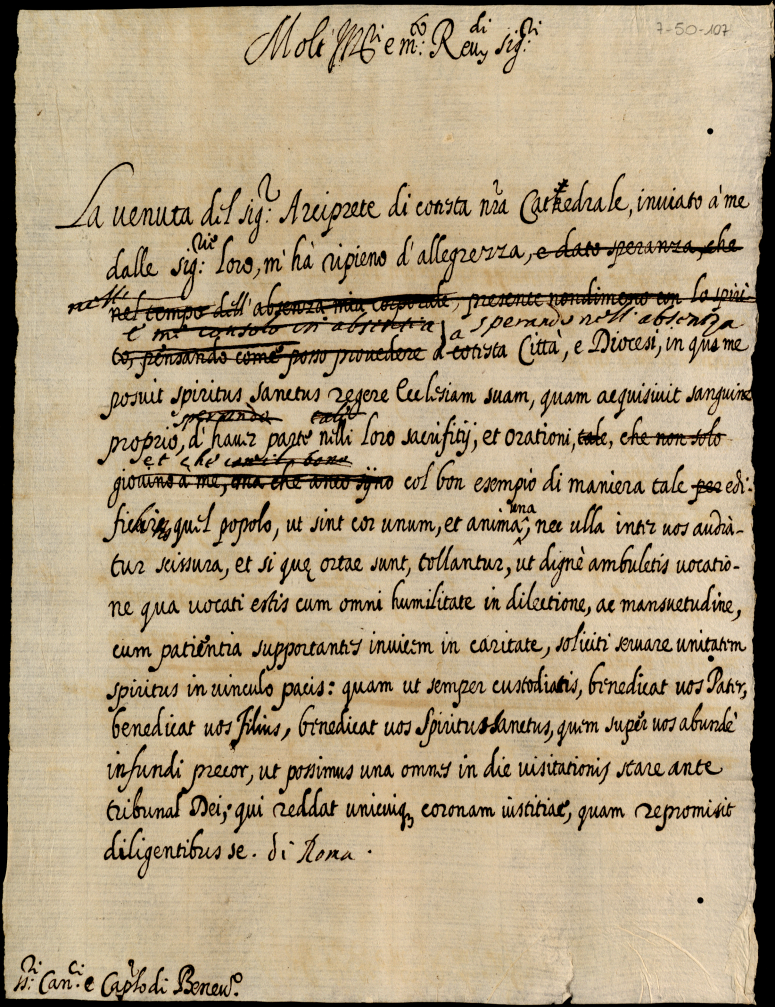 7-50-107
Molt' Ill.ri e m.to Reu.di sig.ri
La venuta del sig.r Arciprete di cotesta n.ra Cathedrale, inuiato à me
dalle sig.rie loro, m' hà ripieno d' allegrezza, e dato speranza, che
nelli
nel tempo dell' absenza mia corporale, presente nondimeno con lo spiri-
e me consolo in absentia, sperando nell' absenza
to, pensando come posso prouedere à cotesta Città, e Diocesi, in qua me
posuit spiritus sanctus regere Ecclesiam suam, quam acquisiuit sanguine
sperando
proprio, di hauer parte nelli loro sacrifitij, et orationi, tale, che non solo
et che
giouino a me, ma che anco siano col bon esempio di maniera tale per edi-
ficar quel popolo, ut sint cor unum, et anima una, nec ulla inter uos audia-
tur scissura, et si quę ortae sunt, tollantur, ut dignè ambuletis uocatio-
ne qua uocati estis cum omni humilitate in dilectione, ac mansuetudine,
cum patientia supportantes inuicem in caritate, soliciti seruare unitatem
spiritus in uinculo pacis: quam ut semper custodiatis, benedicat uos Pater,
benedicat uos Filius, benedicat uos Spiritus Sanctus, quem super uos abundè
infundi precor, ut possimus una omnes in die uisitationis stare ante
tribunal Dei, qui reddat unicuiq, coronam iustitiae, quam repromisit
diligentibus se. di Roma.
ss.ri Can.ci e Cap.lo di Beneu.o